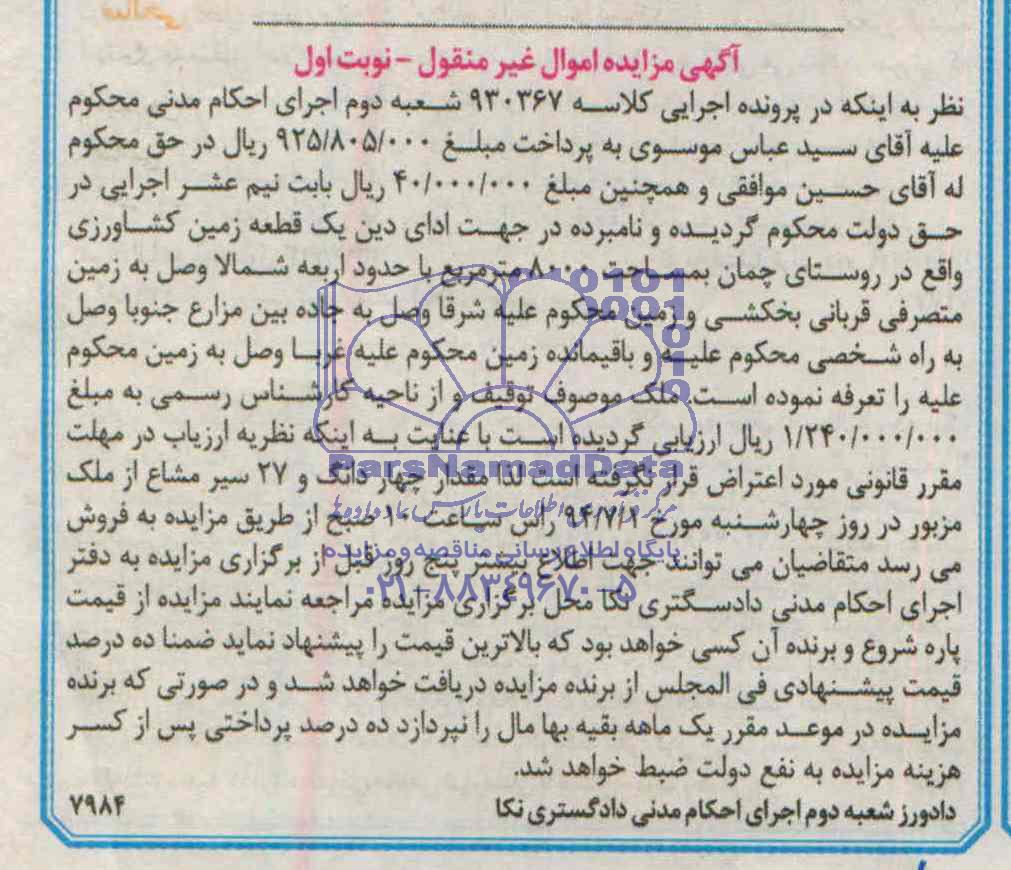 آگهی مزایده اموال غیر منقول - نوبت اول
نظر به اینکه در پرونده اجرایی کلاسه ۹۳۰۳۶۷ شعبه دوم اجرای احکام مدنی محکوم
علیه آقای سید عباس موسوی به پرداخت مبلغ ۹۲۵/۸۰۵/۰۰۰ ریال در حق محکوم
له آقای حسین موافقی و همچنین مبلغ ۴۰/۰۰۰/۰۰۰ ریال بابت نیم عشر اجرایی در
حق دولت محکوم گردیده و نامبرده در جهت ادای دین یک قطعه زمین کشاورزی
واقع در روستای چمان بمساحت ۸۰۰۰ مترمربع با حدود اربعه شمالا وصل به زمین
متصرفی قربانی بخکشی و زمین محکوم علیه شرقا وصل به جاده بین مزارع جنوبا وصل
به راه شخصی محکوم علیه و باقیمانده زمین محکوم علیه غربا وصل به زمین محکوم
علیه را تعرفه نموده است. ملک موصوف توقیف و از ناحیه کارشناس رسمی به مبلغ
۱/۲۴۰/۰۰۰/۰۰۰ ریال ارزیابی گردیده است با عنایت به اینکه نظریه ارزیاب در مهلت
مقرر قانونی مورد اعتراض قرار نگرفته است لذا مقدار چهار دانگ و ۲۷ سیر مشاع از ملک
مزبور در روز چهارشنبه مورخ ۹۴/۷/۱ راس ساعت ۱۰ صبح از طریق مزایده به فروش
می رسد متقاضیان می توانند جهت اطلاع بیشتر پنج روز قبل از برگزاری مزایده به دفتر
اجرای احکام مدنی دادسگتری نکا محل برگزاری مزایده مراجعه نمایند مزایده از قیمت
پاره شروع و برنده آن کسی خواهد بود که بالاترین قیمت را پیشنهاد نماید ضمنا ده درصد
قیمت پیشنهادی فی المجلس از برنده مزایده دریافت خواهد شد و در صورتی که برنده
مزایده در موعد مقرر یک ماهه بقیه بها مال را نپردازد ده درصد پرداختی پس از کسر
هزینه مزایده به نفع دولت ضبط خواهد شد.
دادورز شعبه دوم اجرای احکام مدنی دادگستری نکا
۷۹۸۴
ParsNamadData
پایگاه اطلاع رسانی مناقصه و مزایده
۰۲۱-۸۸۳۴۹۶۷۰-۵